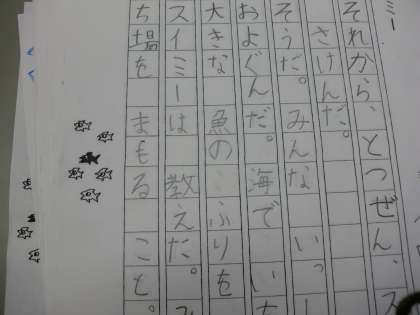 ミー
それから、とつぜん、ス
さけんだ。
そうだ。みんないっ
およぐんだ。海でい
大きな魚のふりを
スイミーは教えた。
ち場をまもること。